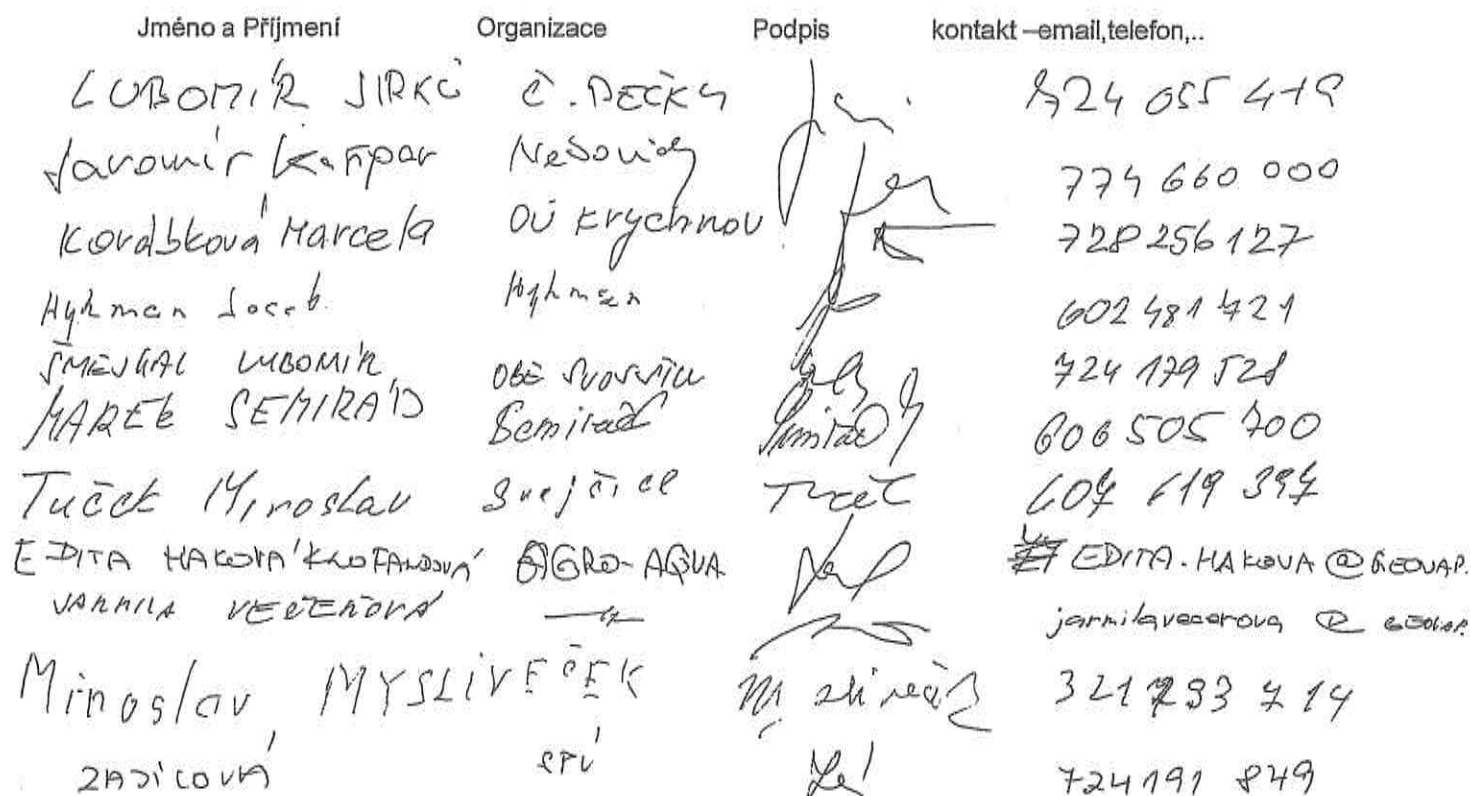 Jméno a Příjmení Organizace Podpis kontakt –email,telefon,..
LUBOMÍR JIRKŮ Č. PEČKY 724 055 419
Jaromír Kašpar 774 660 000
Korábková Marcela OÚ Krychnov 728 256 127
Hyhman Hyhman 602 481 721
ŠMEJKAL LUBOMÍR 724 179 528
MAREK SEMIRÁD Semirád Semirád 606 505 700
Tuček Miroslav Svojšice Tuček 607 619 397
EDITA HAKOVÁ AGRO-AQUA EDITA.HAKOVA@GEOVAP.
JARMILA VEČEŘOVÁ —"— jarmilavecerova @ GEOVAP.
Miroslav MYSLIVEČEK 321 793 714
SPÚ 724 191 849